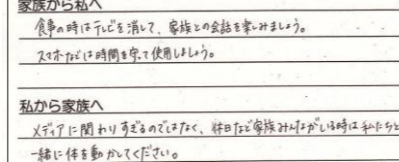 家族から私へ
食事の時はテレビを消して、家族との会話を楽しみましょう。
スマホなどは時間を守って使用しましょう。
私から家族へ
メディアに関わりすぎるのではなく、休日など家族みんながいる時は私たちと
一緒に体を動かしてください。